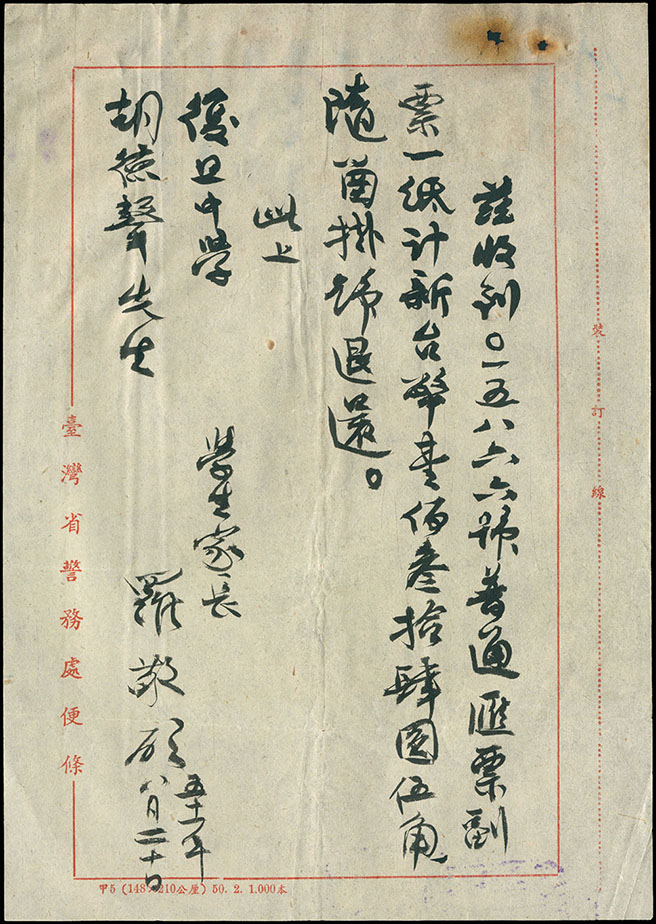 茲收到〇一五八六六號普通匯票副
票一紙计新台幣壹佰叁拾肆圓伍角
隨函掛號退還。
此上
復旦中學
胡德馨先生
學生家長
羅敬
五十一年
八月二十日
臺灣省警務處便條
裝訂線
甲5(148×210公厘) 50. 2. 1.000本